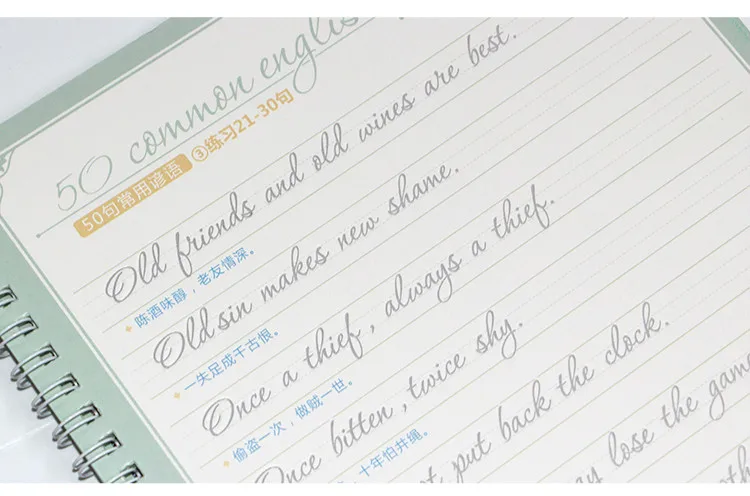 50 common englis
50句常用谚语 ③练习21-30句
Old friends and old wines are best.
陈酒味醇，老友情深。
Old sin makes new shame.
一失足成千古恨。
Once a thief, always a thief.
偷盗一次，做贼一世。
Once bitten, twice shy.
，十年怕井绳。
put back the clock.
lose the gam